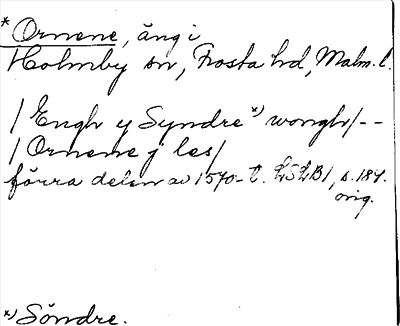 * Ornene, äng i
Holmby sn, Frosta hd, Malm. l.
/ Engh y Syndre *) wongh / - -
/ Ornene j les /
förra delen av 1570-t. LSLB1, s. 184.
orig.
*) Söndre.